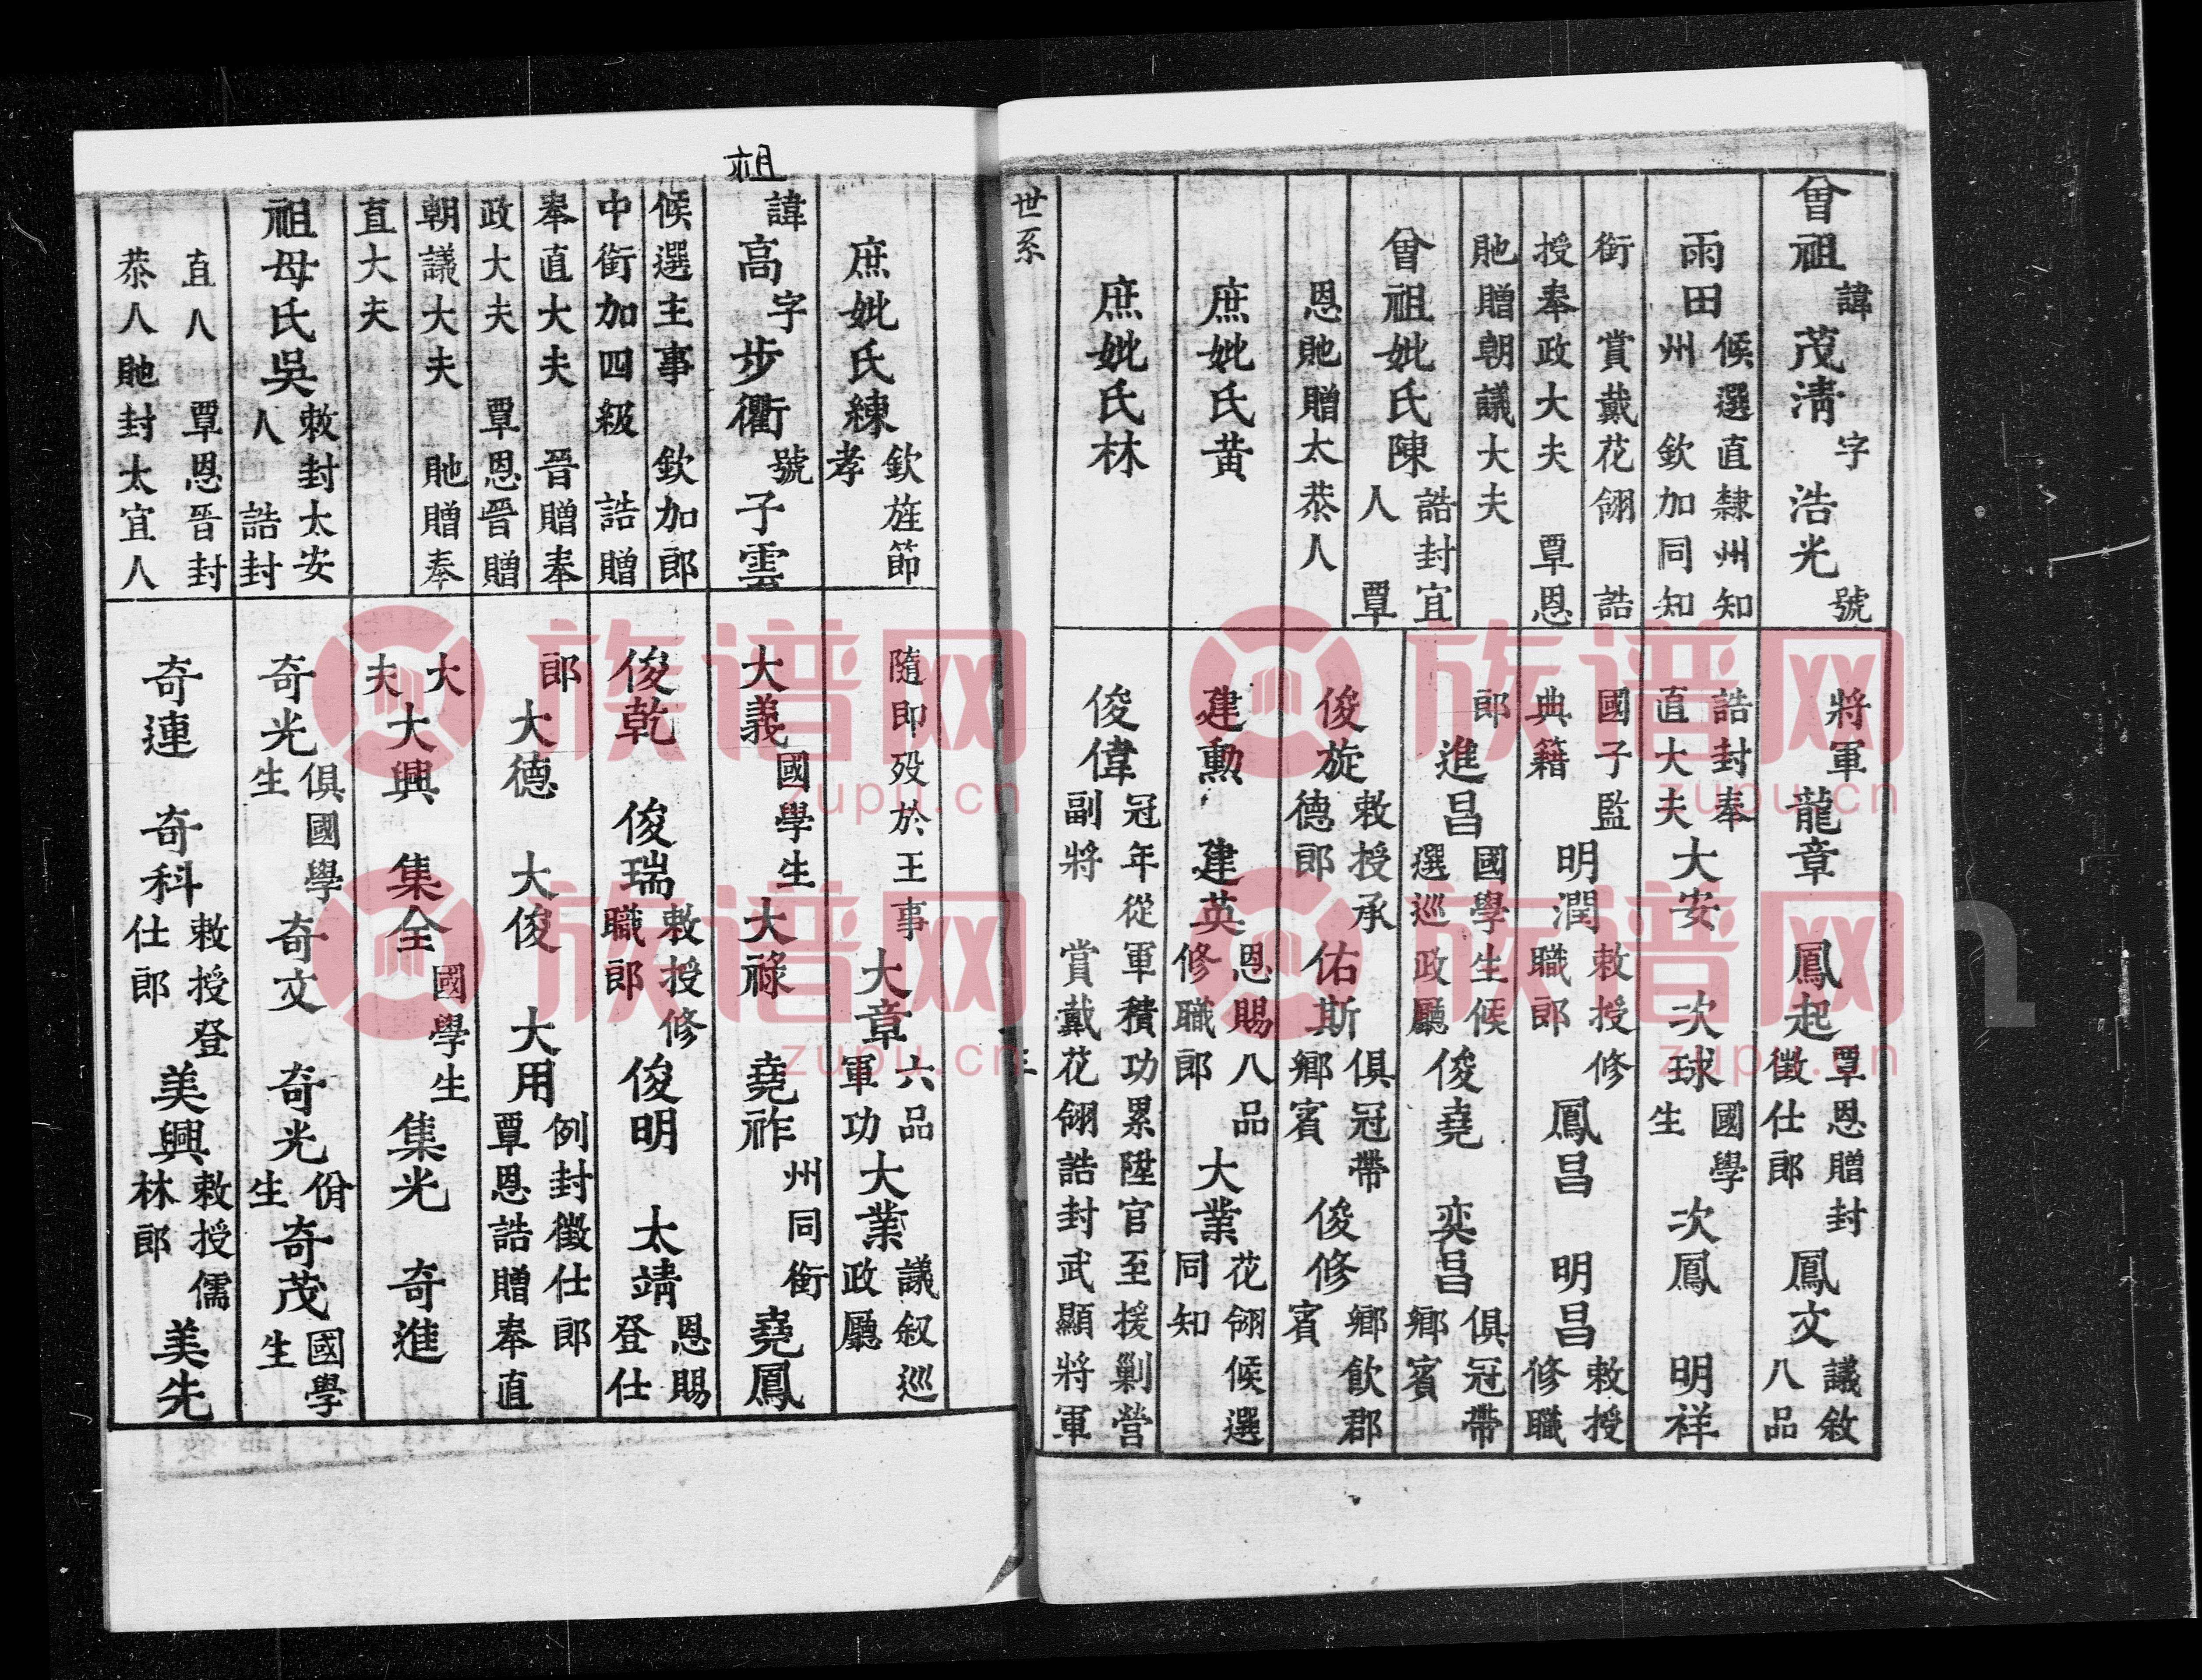 曾祖諱茂淸字浩光號
雨田候選直隸州知州欽加同知
銜賞戴花翎誥
授奉政大夫覃恩
貤贈朝議大夫
曾祖妣氏陳誥封宜人覃
恩貤贈太恭人
庶妣氏黃
庶妣氏林
將軍龍章鳳起覃恩贈封徵仕郎鳳文議敘八品
誥封奉直大夫大安次球國學生次鳳明祥
國子監典籍明潤敕授修職郎鳳昌明昌敕授修職
郎進昌國學生候選巡政廳俊堯奕昌俱冠帶鄉賓
俊旋敕授承德郎佑斯俱冠帶鄉賓俊修鄉飲郡賓
建勳建英恩賜八品修職郎大業花翎候選同知
俊偉冠年從軍積功累陞官至援剿營副將賞戴花翎誥封武顯將軍
世系
庶妣氏練欽旌節孝
祖
諱高字步衢號子雲
候選主事欽加郎
中銜加四級誥贈
奉直大夫晉贈奉
政大夫覃恩晉贈
朝議大夫貤贈奉
直大夫
祖母氏吳敕封太安人誥封
直人覃恩晉封
恭人貤封太宜人
隨即歿於王事大章六品軍功大業議叙巡政廳
大義國學生大祿堯祚州同銜堯鳳
俊乾俊瑞敕授修職郎俊明太靖恩賜登仕
郎大德大俊大用例封徵仕郎覃恩誥贈奉直
大夫大興集全國學生集光奇進
奇光俱國學生奇文奇光佾生奇茂國學生
奇連奇科敕授登仕郎美興敕授儒林郎美先
族谱网
zupu.cn
族谱网
zupu.cn
族谱网
zupu.cn
族谱网
zupu.cn